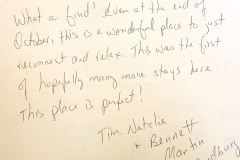 What a find! even at the end of
October, this is a wonderful place to just
reconnect and relax. This was the first
of hopefully many more stays here.
This place is perfect!
Tim, Natalie
& Bennett
Martin